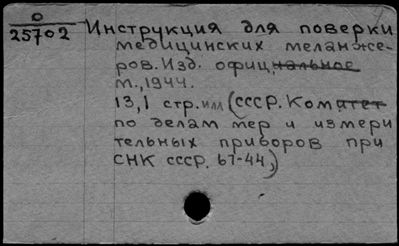 0
25702 Инструкция для поверки
медицинских меланже-
ров. Изд. официальное
М., 1944.
13,1 стр. илл (СССР. Комитет
по делам мер и измери
тельных приборов при
СНК СССР. 67-44)